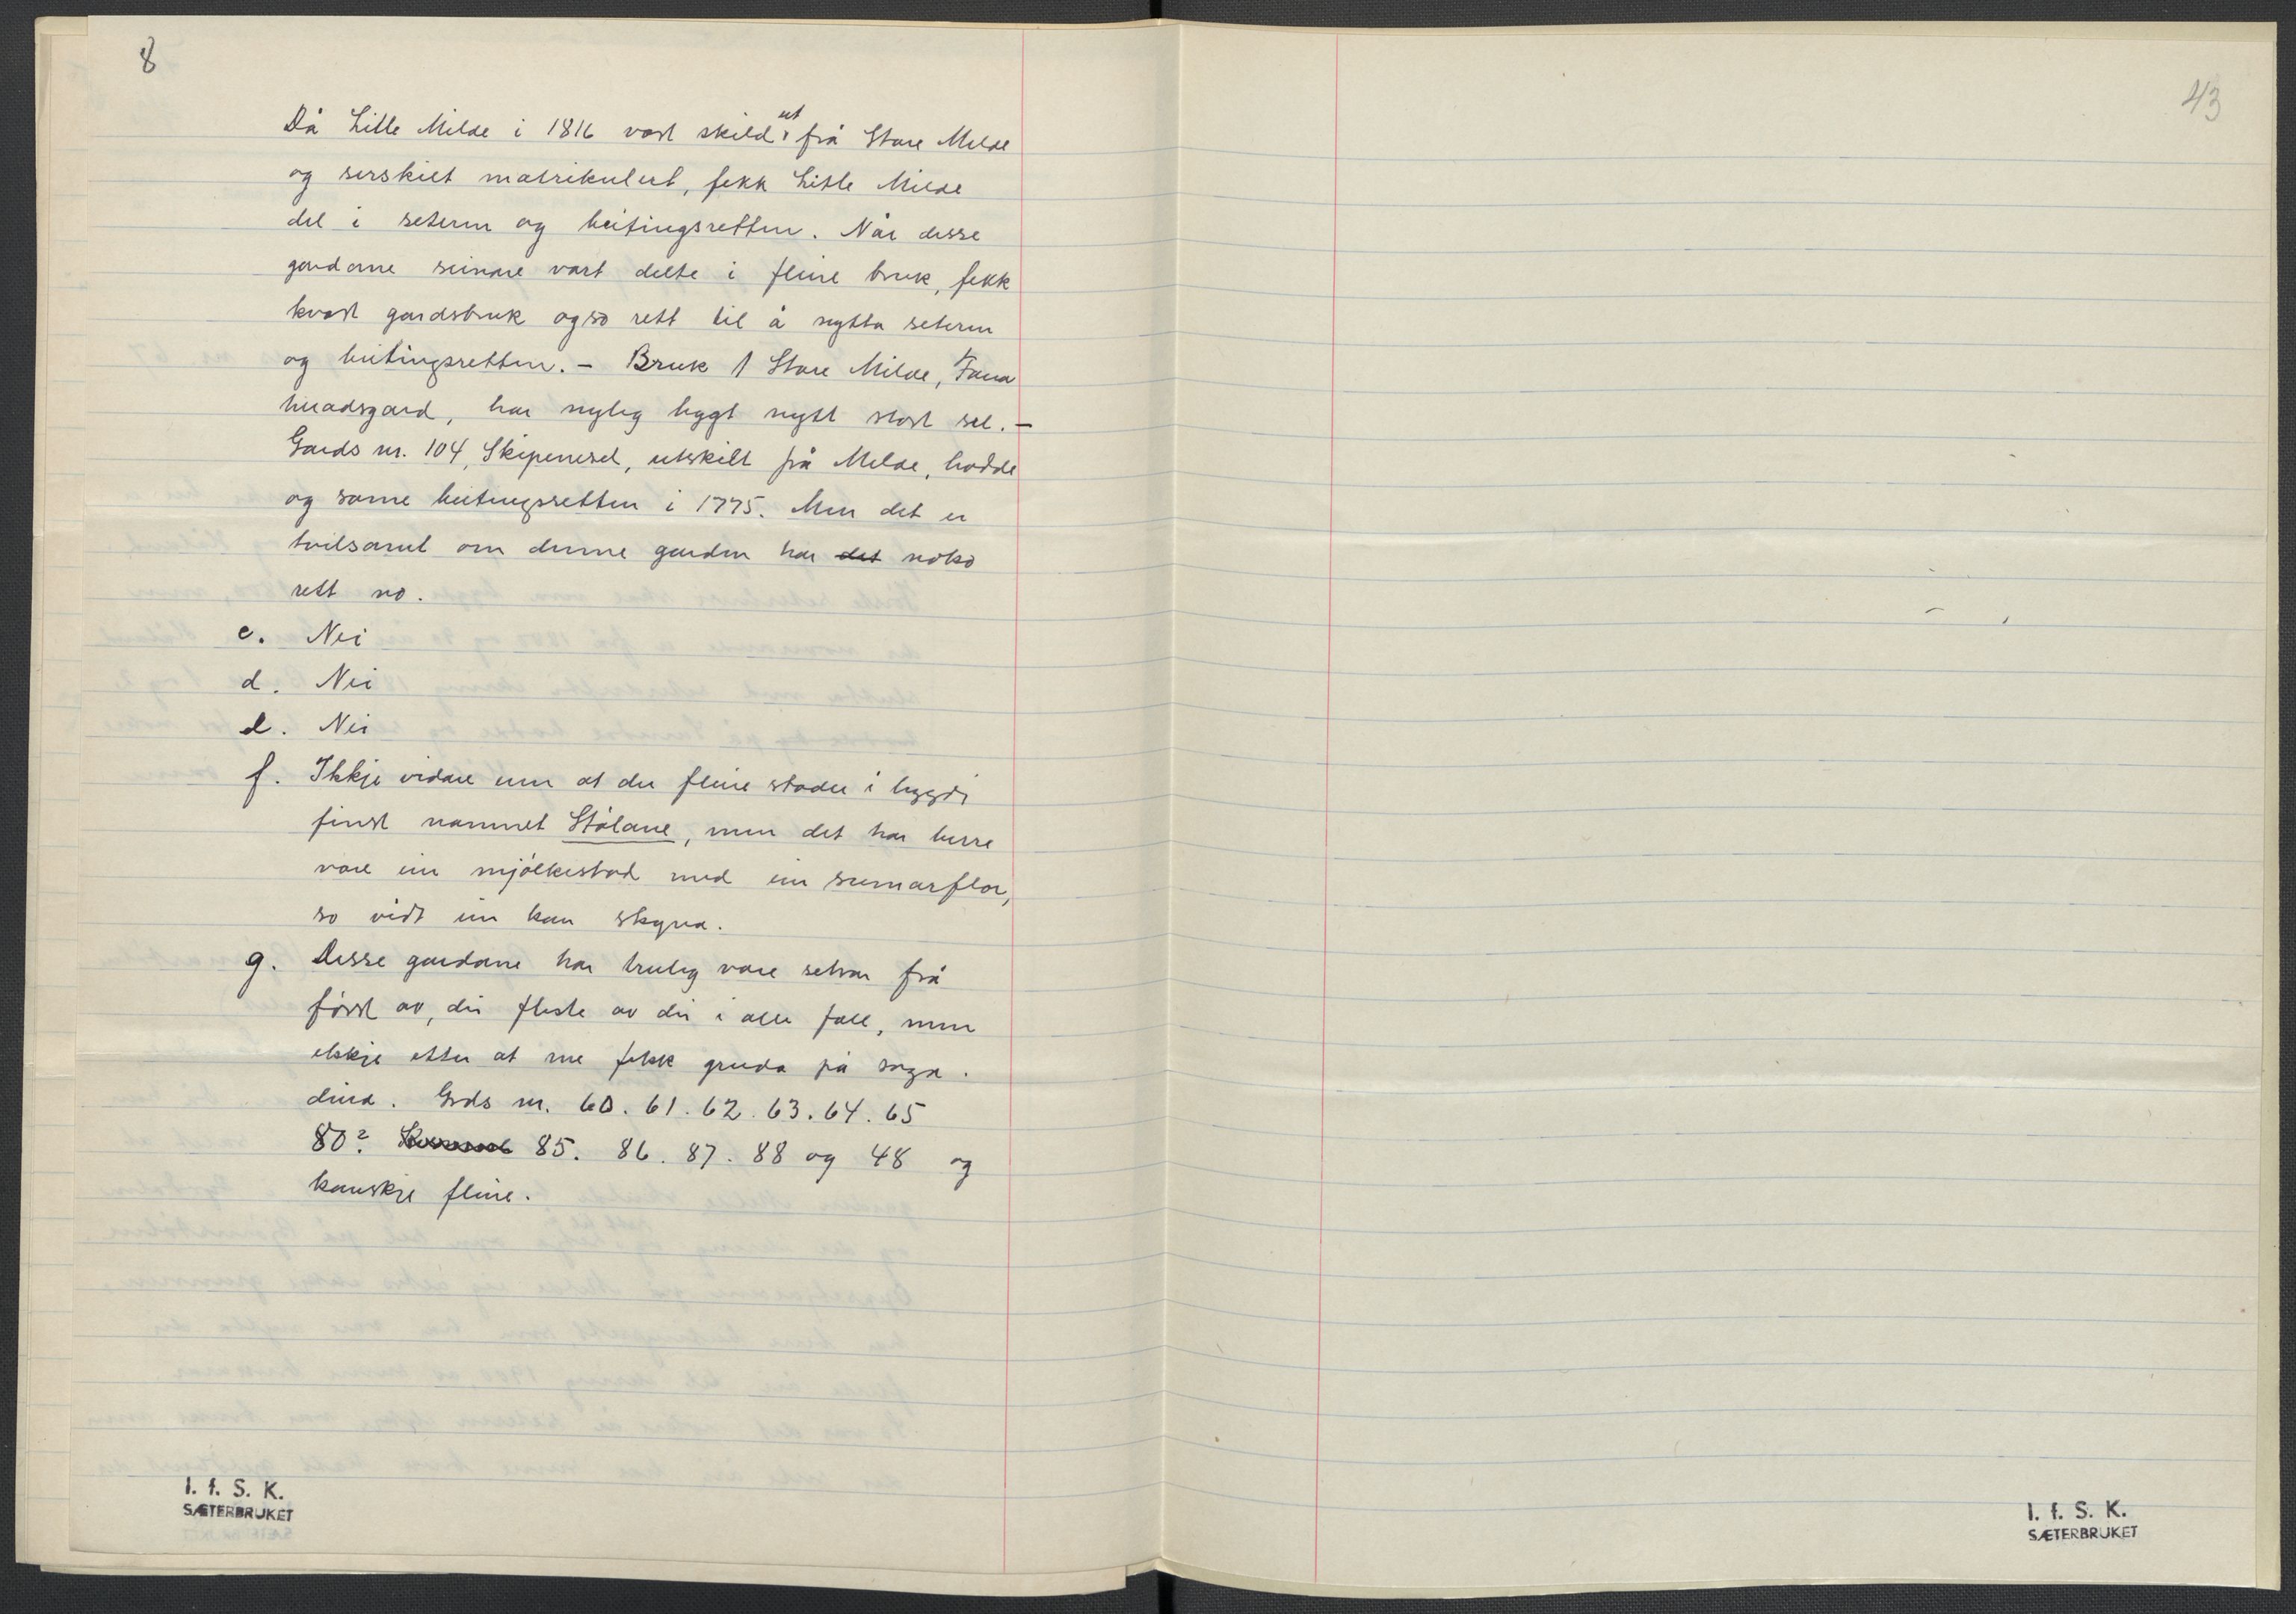 8
Då Litle Milde i 1816 vart skild ut frå Store Milde
og serskilt matrikulert, fekk Litle Milde
del i seteren og beitingsretten. Når desse
gardane seinare vart delte i fleire bruk, fekk
kvart gardsbruk ogso rett til å nytta seteren
og beitingsretten. – Bruk 1 Store Milde, Fana
heradsgard, har nyleg bygt nytt stort sel. –
Gards nr. 104, Skipenesel, utskilt frå Milde, hadde
og same beitingsretten i 1775. Men det er
tvilsamt om denne garden har det noko
rett no.
c. Nei
d. Nei
e. Nei
f. Ikkje vidare enn at der fleire stader i bygdi
finst namnet Stølane, men det har berre
vore ein mjølkestad med ein sumarflor,
so vidt ein kan skyna.
g. Desse gardane har truleg vore setrar frå
først av, dei fleste av dei i alle fall, men
ikkje etter at me fekk greida på soga
deira. Grds nr. 60. 61. 62. 63. 64. 65
80? 85. 86. 87. 88 og 48 og
kanskje fleire.
I. f. S. K.
SÆTERBRUKET
43
I. f. S. K.
SÆTERBRUKET